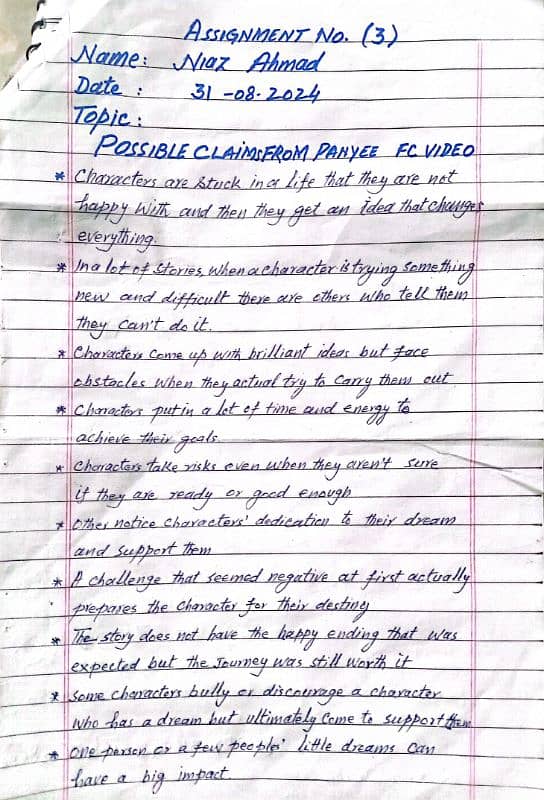 ASSIGNMENT NO. (3)
Name: Niaz Ahmad
Date : 31-08-2024
Topic:
POSSIBLE CLAIMS FROM PANYEE FC VIDEO
* Characters are stuck in a life that they are not
happy with and then they get an idea that changes
everything.
* In a lot of stories, when a character is trying something
new and difficult there are others who tell them
they can't do it.
* Characters come up with brilliant ideas but face
obstacles when they actual try to carry them out
* Characters put in a lot of time and energy to
achieve their goals
* Characters take risks even when they aren't sure
if they are ready or good enough
* Other notice characters' dedication to their dream
and support them
* A challenge that seemed negative at first actually
prepares the character for their destiny
* The story does not have the happy ending that was
expected but the Journey was still worth it
* Some characters bully or discourage a character
who has a dream but ultimately come to support them
* One person or a few peoples' little dreams can
have a big impact